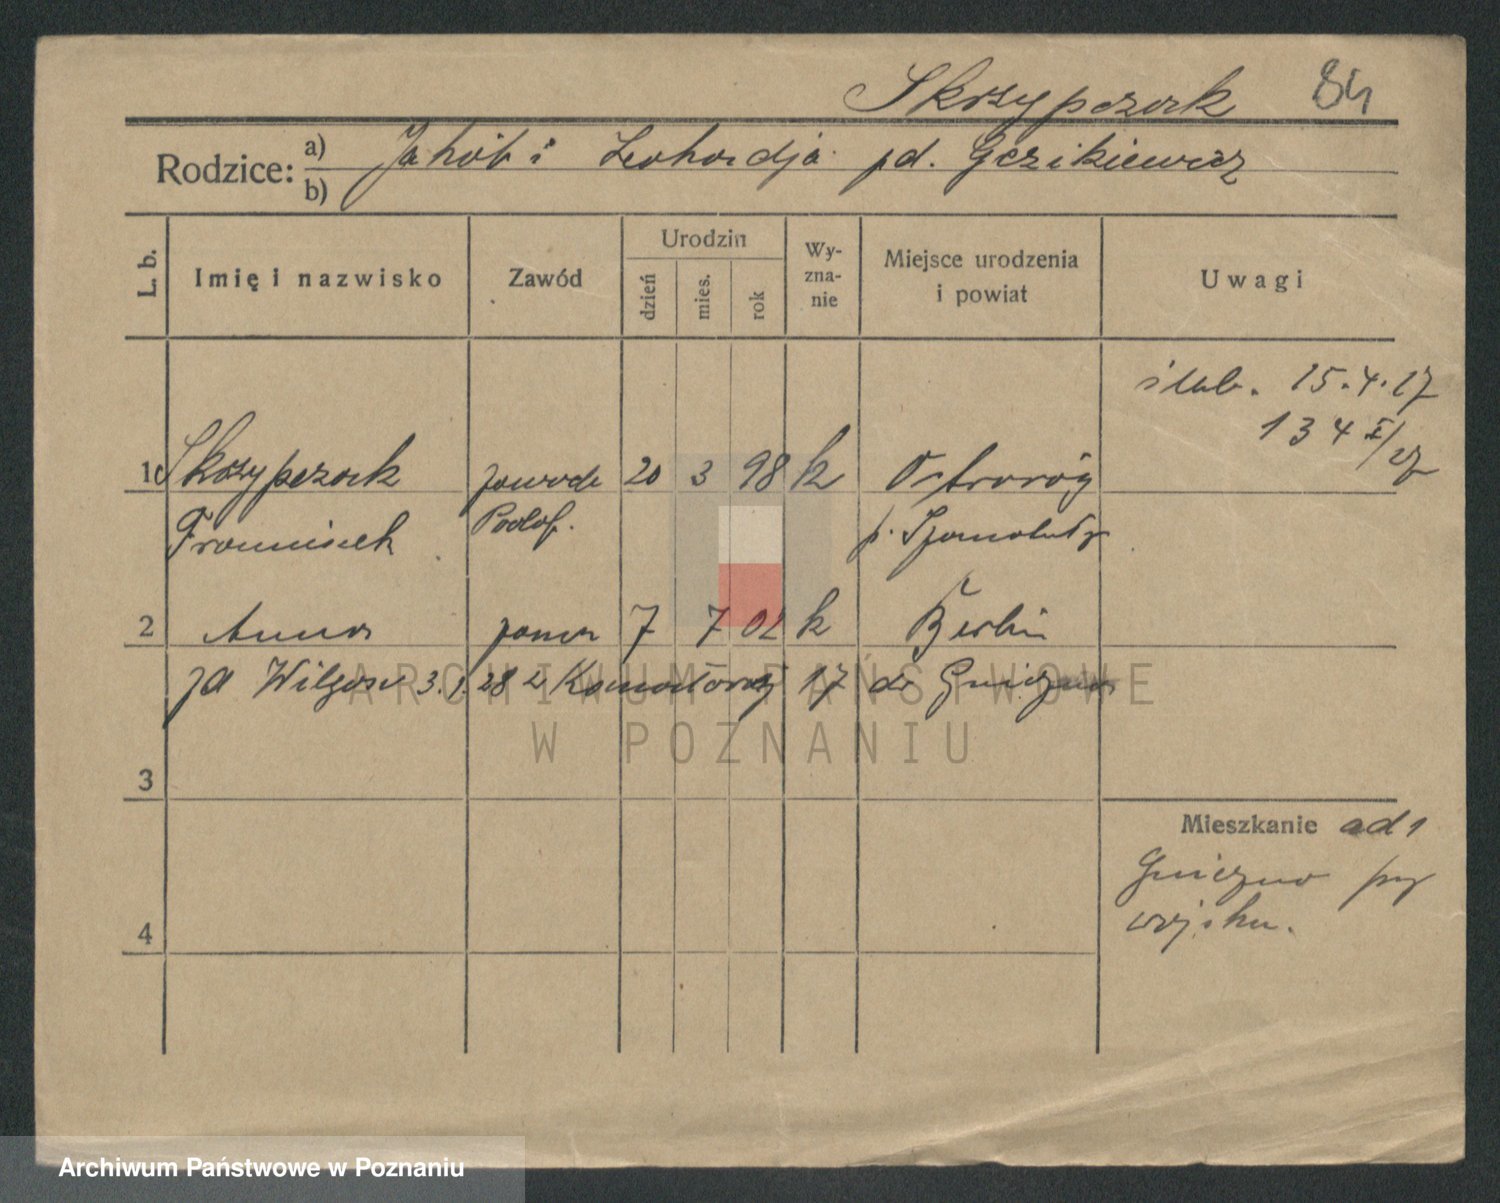 Skrzypczak 84
Rodzice: a) Jakób i Leokadja pd. Gezikiewicz
b)
L. b. Imię i nazwisko Zawód Urodzin dzień mies. rok Wy-zna-nie Miejsce urodzenia i powiat Uwagi
ślub. 15.4.27
134 I/27
1 Skrzypczak zawod. 20 3 98 k Ostroróg
Franciszek Podof. p. Szamotuły
2 Anna żona 7 7 02 k Berlin
3.1.28 z 17 do Gniezna
3
Mieszkanie ad 1
Gniezno przy
wojsku.
4
ARCHIWUM PAŃSTWOWE
W POZNANIU
Archiwum Państwowe w Poznaniu